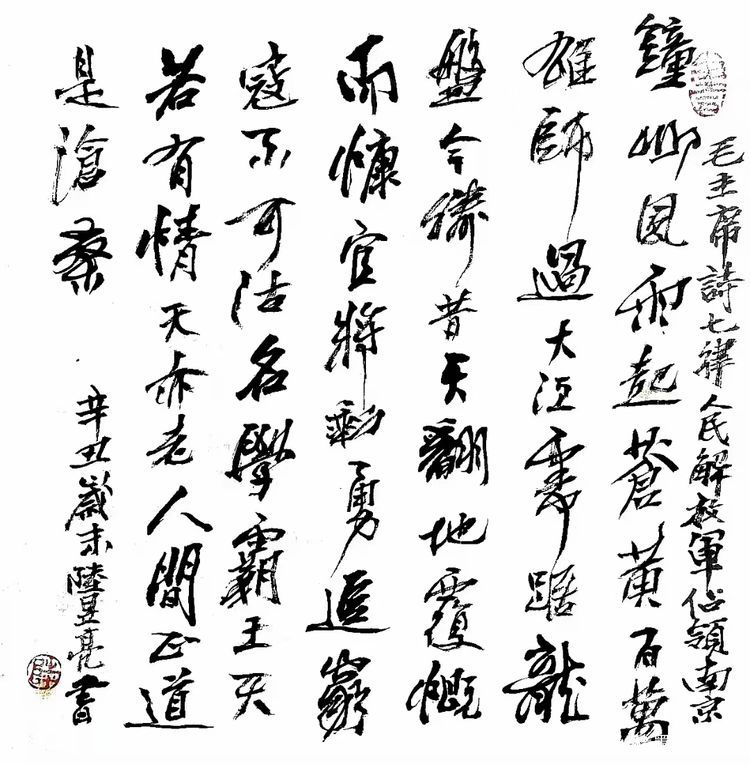 毛主席詩七律人民解放軍佔領南京
鐘山風雨起蒼黄百萬
雄師過大江虎踞龍
盤今勝昔天翻地覆慨
而慷宜將剩勇追窮
寇不可沽名學霸王天
若有情天亦老人間正道
是滄桑
辛丑歲末陸昱亮書